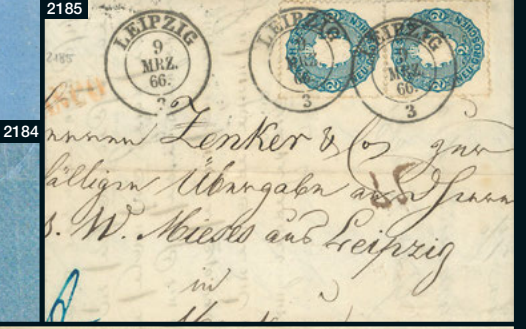 2185
LEIPZIG
9
MRZ.
66.
3
LEIPZIG
9
MRZ.
66.
3
LEIPZIG
MRZ.
66.
3
2185
NEUGROSCH
2184
Zenker & Co zur
fälligen Übergabe an Herrn
S. W. Mieses aus Leipzig
in